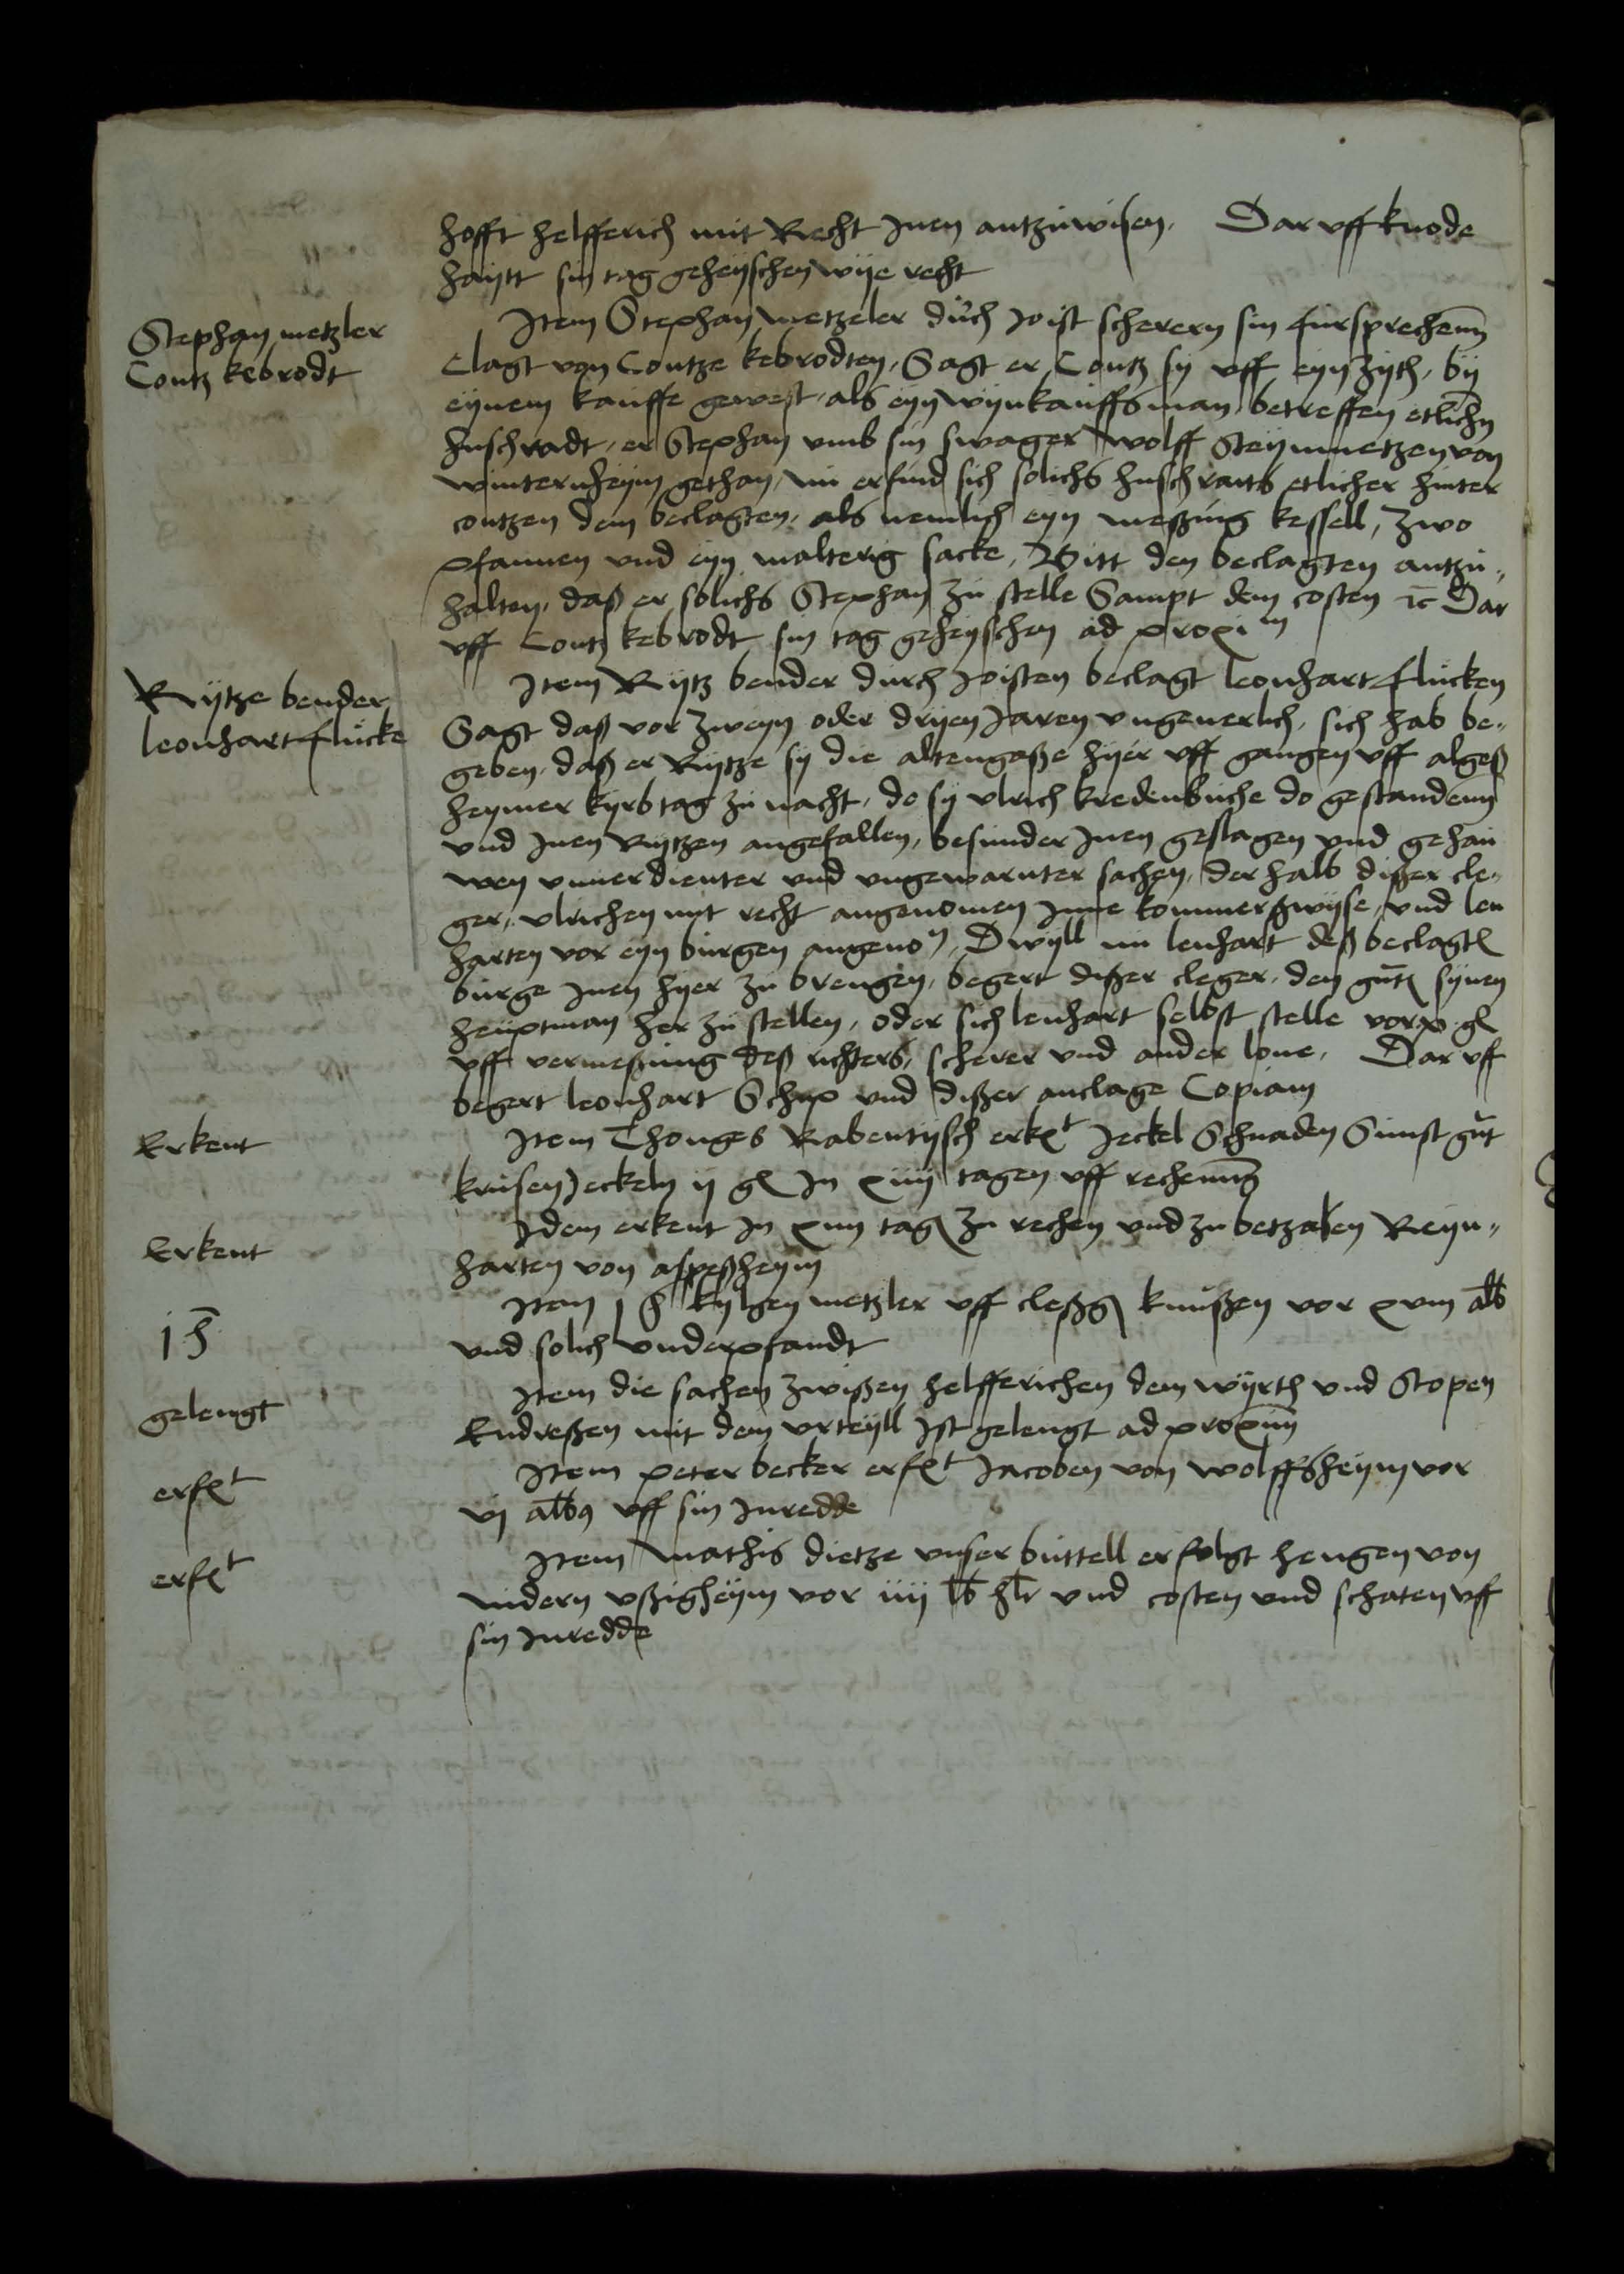 hofft helfferich mit Recht Jnen antzuwisen. Dar vff knode
haytt sin tag geheyschen wije recht
Stephan metzler
Contz kebrodt
Jtem Stephan metzeler durch Joist scherern sin fursprechenn
clagt von Contze kebrodten, Sagt er Contz sy vff eyn zyth, by
eynem kauffe gewest, als eyn wynkauffsman, betreffen etlichn
huschradt, er Stephan vmb sin swager wolff Steynmetzen von
winternheym gethan, nu erfind sich solichs huschraits etlicher hinter
contzen dem beclagten, als nemlich eyn meßing kessell, zwo
pfannen vnd eyn malterig sacke, Bitt den beclagten antzu-
halten, daß er solichs Stephan zu stelle Sampt dem costen rc Dar
vff Contz kebrodt sin tag geheyschen ad proxim
Rytze bender
leonhart flucke
Jtem Rytz bender durch Joisten beclagt leonhart flucken
Sagt daß vor zweyn oder dryen Jaren vngeuerlich, sich hab be-
geben, daß er Rytze sy die altengaße hyer vff gangen vff algeß
heymer kyrbtag zu nacht, do sy vlrich kredenbuche do gestandenn
vnd Jnen Rytzen angefallen, besunder Jnen geslagen vnd gehau
wen vnuerdienter vnd vngewarnter sachen, der halb dißer cle-
ger, vlrichen mit recht angenomen Jnne kommerßwyse, vnd len
harten vor eyn burgen angenon, Dwyll nu lenhart deß beclagt
burge Jnen hyer zu brengen, begert dißer cleger, den gut synen
heuptman her zu stellen, oder sich lenhart selbst stelle vor x gl
vff vermeßung deß richters, scherer vnd ander lone, Dar vff
begert leonhart Schup vnd dißer anclage Copiam
Erkent
Jtem Thonges Rabentysch erkt Jeckel Schnaden Sunst gut
krusen Jeckeln ij gl Jn xiiij tagen vff rechenung
Erkent
Jdem erkent Jn xiiij tag zu rechen vnd zu betzalen Reyn-
harten von aspeßheym
1 h
Jtem j h kylgen metzler vff cleßg knußen vor xviij alb
vnd solich vnderpfandt
gelengt
Jtem die sachen zwißen helfferichen dem wyrth vnd Stopen
Endreßen mit dem vrteyll Jst gelengt ad proximm
erft
Jtem peter becker erft Jacoben von wolffsheym vor
vj albus vff sin Jnredde
erft
Jtem mathis dietze vnser buttell erfolgt hengen von
nidern vßigheym vor iiij lb hlr vnd costen vnd schaten vff
sin Jnredde